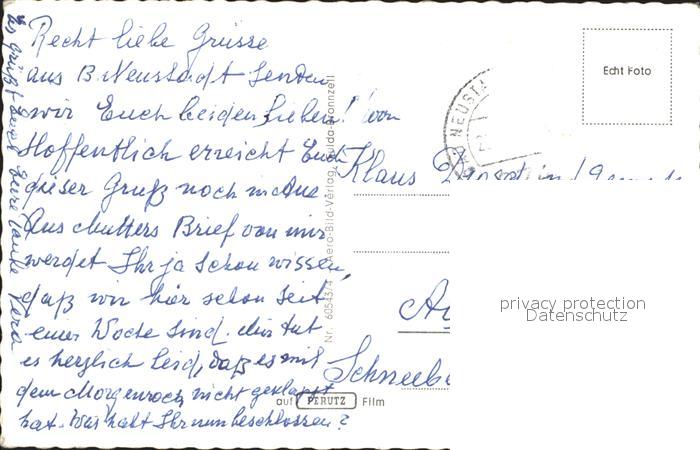 Recht liebe Grüsse
aus B. Neustadt senden
wir Euch beiden Lieben! von
Hoffentlich erreicht Euch
dieser Gruß noch in Aue
Aus Mutters Brief von mir
werdet Ihr ja schon wissen,
daß wir hier schon seit
einer Woche sind. Mir tut
es herzlich leid, daß es mit
dem Morgenrock nicht geklappt
hat. Was habt Ihr nun beschlossen?
Es grüßt Euch Eure Tante Vera
Nr. 60543/4 Aero-Bild-Verlag, Fulda-Bronnzell
auf PERUTZ Film
Echt Foto
NEUSTA
Klaus
Au
Schneebe
privacy protection
Datenschutz